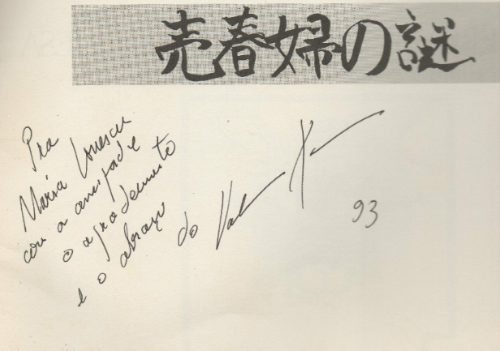 売春婦の謎
Pra
Maria Ionescu
com a amizade
o agradecimento
e o abraço do
93